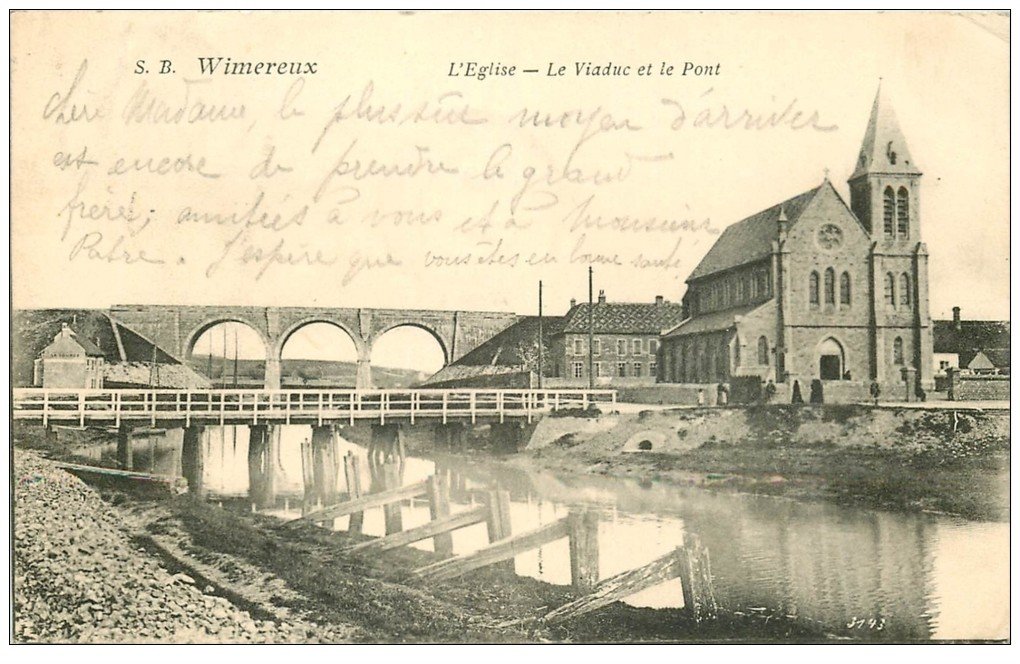 S. B. Wimereux
L'Eglise — Le Viaduc et le Pont
chère Madame, le plus sûr moyen d'arriver
est encore de prendre le grand
frère; amitiés à vous et à Monsieur
Patre. J'espère que vous êtes en bonne santé
3143